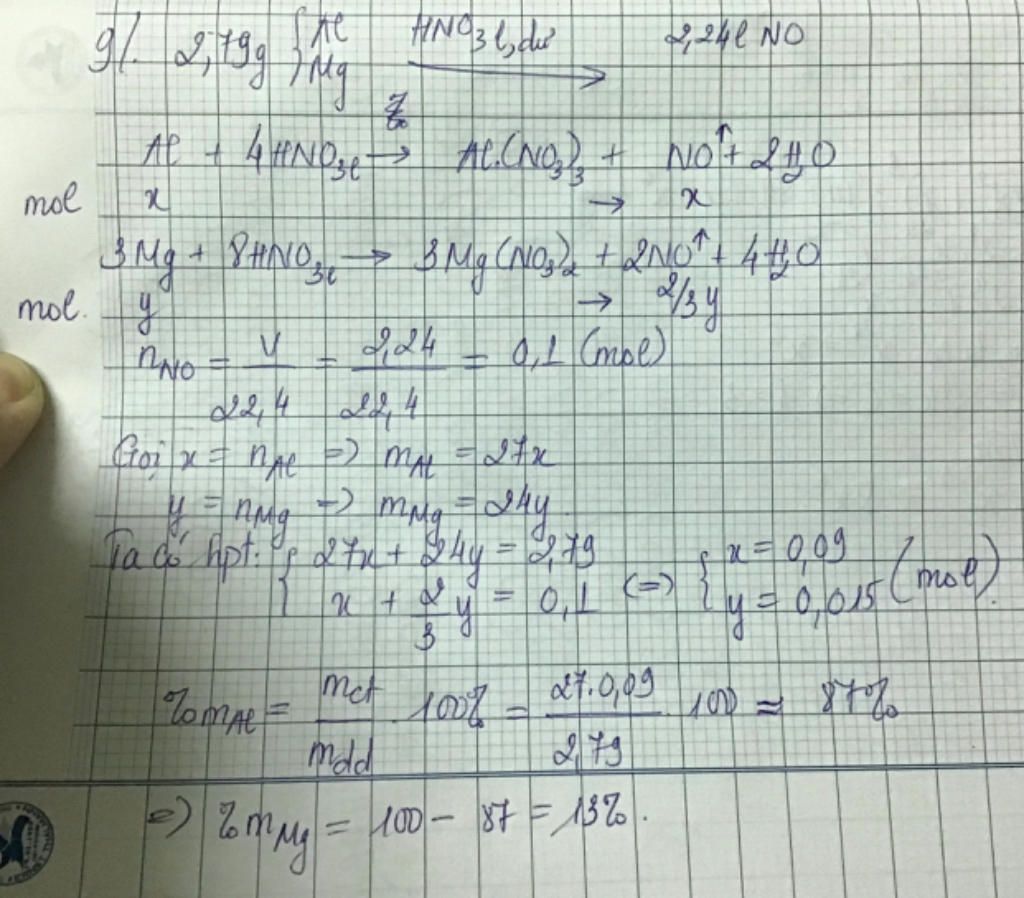 9/. 2,79g { Al Mg HNO3 l, dư → 2,24l NO
Al + 4HNO3l → Al(NO3)3 + NO↑ + 2H2O
mol x → x
3Mg + 8HNO3l → 3Mg(NO3)2 + 2NO↑ + 4H2O
mol. y → 2/3y
nNO = V/22,4 = 2,24/22,4 = 0,1 (mol)
Gọi x = nAl => mAl = 27x
y = nMg => mMg = 24y
Ta có hpt: { 27x + 24y = 2,79
x + 2/3 y = 0,1 <=> { x = 0,09
y = 0,015 (mol).
%mAl = mct/mdd . 100% = 27.0,09/2,79 . 100 ≈ 87%
=> %mMg = 100 - 87 = 13%.